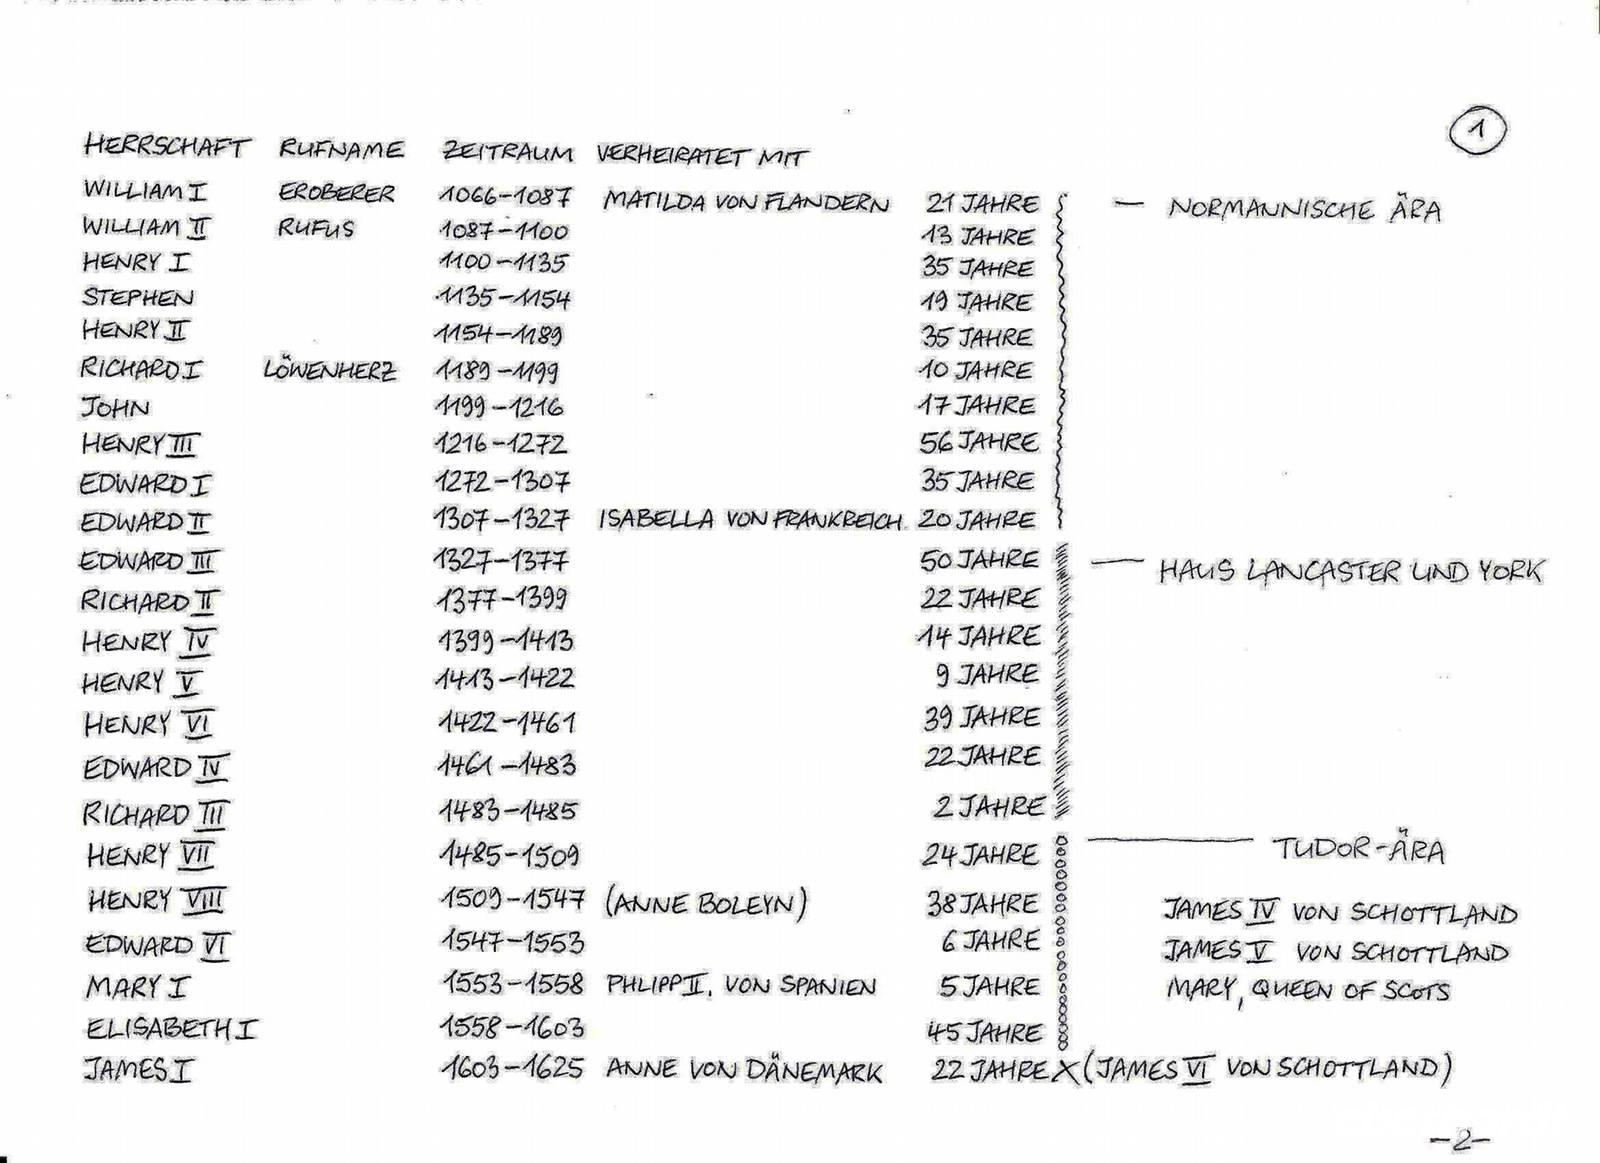 1
HERRSCHAFT RUFNAME ZEITRAUM VERHEIRATET MIT
WILLIAM I EROBERER 1066-1087 MATILDA VON FLANDERN 21 JAHRE — NORMANNISCHE ÄRA
WILLIAM II RUFUS 1087-1100 13 JAHRE
HENRY I 1100-1135 35 JAHRE
STEPHEN 1135-1154 19 JAHRE
HENRY II 1154-1189 35 JAHRE
RICHARD I LÖWENHERZ 1189-1199 10 JAHRE
JOHN 1199-1216 17 JAHRE
HENRY III 1216-1272 56 JAHRE
EDWARD I 1272-1307 35 JAHRE
EDWARD II 1307-1327 ISABELLA VON FRANKREICH 20 JAHRE
EDWARD III 1327-1377 50 JAHRE — HAUS LANCASTER UND YORK
RICHARD II 1377-1399 22 JAHRE
HENRY IV 1399-1413 14 JAHRE
HENRY V 1413-1422 9 JAHRE
HENRY VI 1422-1461 39 JAHRE
EDWARD IV 1461-1483 22 JAHRE
RICHARD III 1483-1485 2 JAHRE
HENRY VII 1485-1509 24 JAHRE — TUDOR-ÄRA
HENRY VIII 1509-1547 (ANNE BOLEYN) 38 JAHRE JAMES IV VON SCHOTTLAND
EDWARD VI 1547-1553 6 JAHRE JAMES V VON SCHOTTLAND
MARY I 1553-1558 PHLIPP II. VON SPANIEN 5 JAHRE MARY, QUEEN OF SCOTS
ELISABETH I 1558-1603 45 JAHRE
JAMES I 1603-1625 ANNE VON DÄNEMARK 22 JAHRE X (JAMES VI VON SCHOTTLAND)
-2-